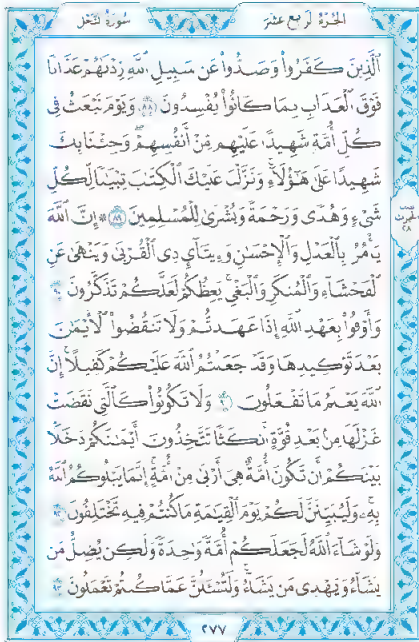 الجزء الرابع عشر
سورة النحل
ٱلَّذِينَ كَفَرُوا۟ وَصَدُّوا۟ عَن سَبِيلِ ٱللَّهِ زِدْنَٰهُمْ عَذَابًا
فَوْقَ ٱلْعَذَابِ بِمَا كَانُوا۟ يُفْسِدُونَ ٨٨ وَيَوْمَ نَبْعَثُ فِى
كُلِّ أُمَّةٍ شَهِيدًا عَلَيْهِم مِّنْ أَنفُسِهِمْ وَجِئْنَا بِكَ
شَهِيدًا عَلَىٰ هَٰٓؤُلَآءِ وَنَزَّلْنَا عَلَيْكَ ٱلْكِتَٰبَ تِبْيَٰنًا لِّكُلِّ
شَىْءٍ وَهُدًى وَرَحْمَةً وَبُشْرَىٰ لِلْمُسْلِمِينَ ٨٩ ۞ إِنَّ ٱللَّهَ
يَأْمُرُ بِٱلْعَدْلِ وَٱلْإِحْسَٰنِ وَإِيتَآئِ ذِى ٱلْقُرْبَىٰ وَيَنْهَىٰ عَنِ
ٱلْفَحْشَآءِ وَٱلْمُنكَرِ وَٱلْبَغْىِ يَعِظُكُمْ لَعَلَّكُمْ تَذَكَّرُونَ ٩٠
وَأَوْفُوا۟ بِعَهْدِ ٱللَّهِ إِذَا عَٰهَدتُّمْ وَلَا تَنقُضُوا۟ ٱلْأَيْمَٰنَ
بَعْدَ تَوْكِيدِهَا وَقَدْ جَعَلْتُمُ ٱللَّهَ عَلَيْكُمْ كَفِيلًا إِنَّ
ٱللَّهَ يَعْلَمُ مَا تَفْعَلُونَ ٩١ وَلَا تَكُونُوا۟ كَٱلَّتِى نَقَضَتْ
غَزْلَهَا مِنۢ بَعْدِ قُوَّةٍ أَنكَٰثًا تَتَّخِذُونَ أَيْمَٰنَكُمْ دَخَلًۢا
بَيْنَكُمْ أَن تَكُونَ أُمَّةٌ هِىَ أَرْبَىٰ مِنْ أُمَّةٍ إِنَّمَا يَبْلُوكُمُ ٱللَّهُ
بِهِۦ وَلَيُبَيِّنَنَّ لَكُمْ يَوْمَ ٱلْقِيَٰمَةِ مَا كُنتُمْ فِيهِ تَخْتَلِفُونَ ٩٢
وَلَوْ شَآءَ ٱللَّهُ لَجَعَلَكُمْ أُمَّةً وَٰحِدَةً وَلَٰكِن يُضِلُّ مَن
يَشَآءُ وَيَهْدِى مَن يَشَآءُ وَلَتُسْـَٔلُنَّ عَمَّا كُنتُمْ تَعْمَلُونَ ٩٣
٢٧٧